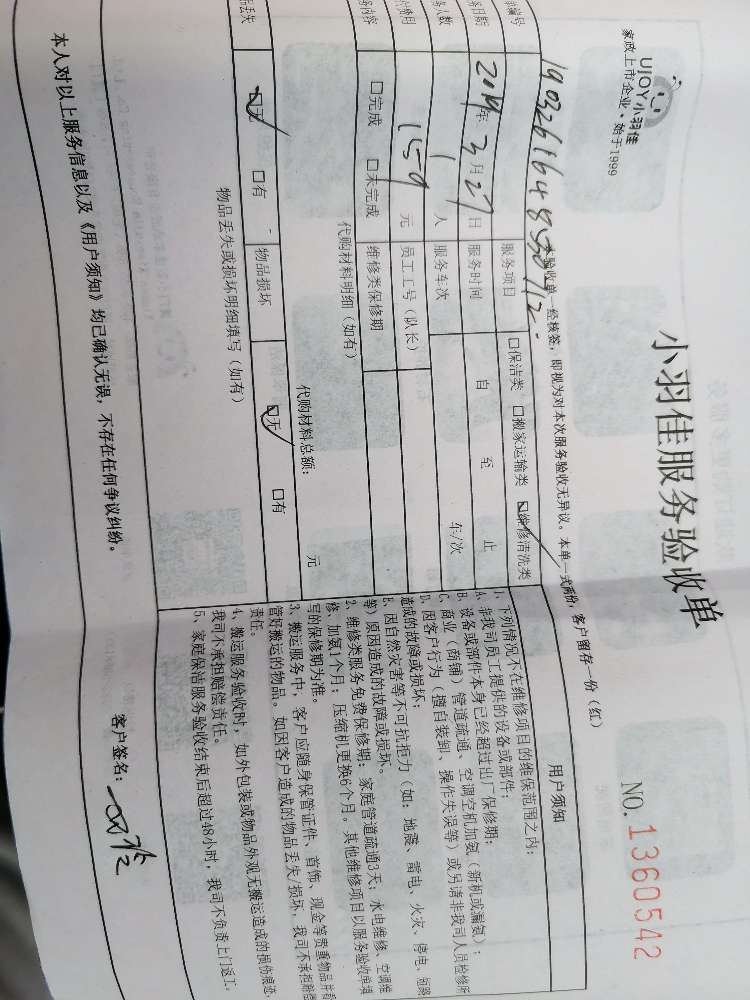 UJOY小羽佳
家政上市企业·始于1999
小羽佳服务验收单
NO.1360542
本验收单一经核签，即视为对本次服务验收无异议。本单一式两份，客户留存一份（红）
单编号
服务项目 □保洁类 □搬家运输类 □维修清洗类
务日期 2019年3月27日 服务时间 自 至 止
务人数 1人 服务车次 车/次
159元 员工工号（队长）
务内容 □完成 □未完成 维修类保修期
代购材料明细（如有）
代购材料总额： 元
品丢失 □无 □有 物品损坏 □无 □有
物品丢失或损坏明细填写（如有）
用户须知
1、下列情况不在维修项目的维保范围之内：
A、非我司员工提供的设备或部件；
B、设备或部件本身已经超过出厂保修期；
C、商业（商铺）管道疏通、空调空机加氨（新机或漏氨）；
D、因客户行为（擅自装卸、操作失误等）或另请非我司人员检修所
造成的故障或损坏；
E、因自然灾害等不可抗拒力（如：地震、雷电、火灾、停电、短路
等）原因造成的故障或损坏。
2、维修类服务免费保修期：家庭管道疏通3天；水电维修、空调维
修、加氨1个月；压缩机更换6个月。其他维修项目以服务验收单填
写的保修期为准。
3、搬运服务中，客户应随身保管证件、首饰、现金等贵重物品并看
管好搬运的物品。如因客户造成的物品丢失/损坏，我司不承担赔偿
责任。
4、搬运服务验收时，如外包装或物品外观无搬运造成的损伤痕迹，
我司不承担赔偿责任。
5、家庭保洁服务验收结束后超过48小时，我司不负责上门返工。
本人对以上服务信息以及《用户须知》均已确认无误，不存在任何争议纠纷。
客户签名：